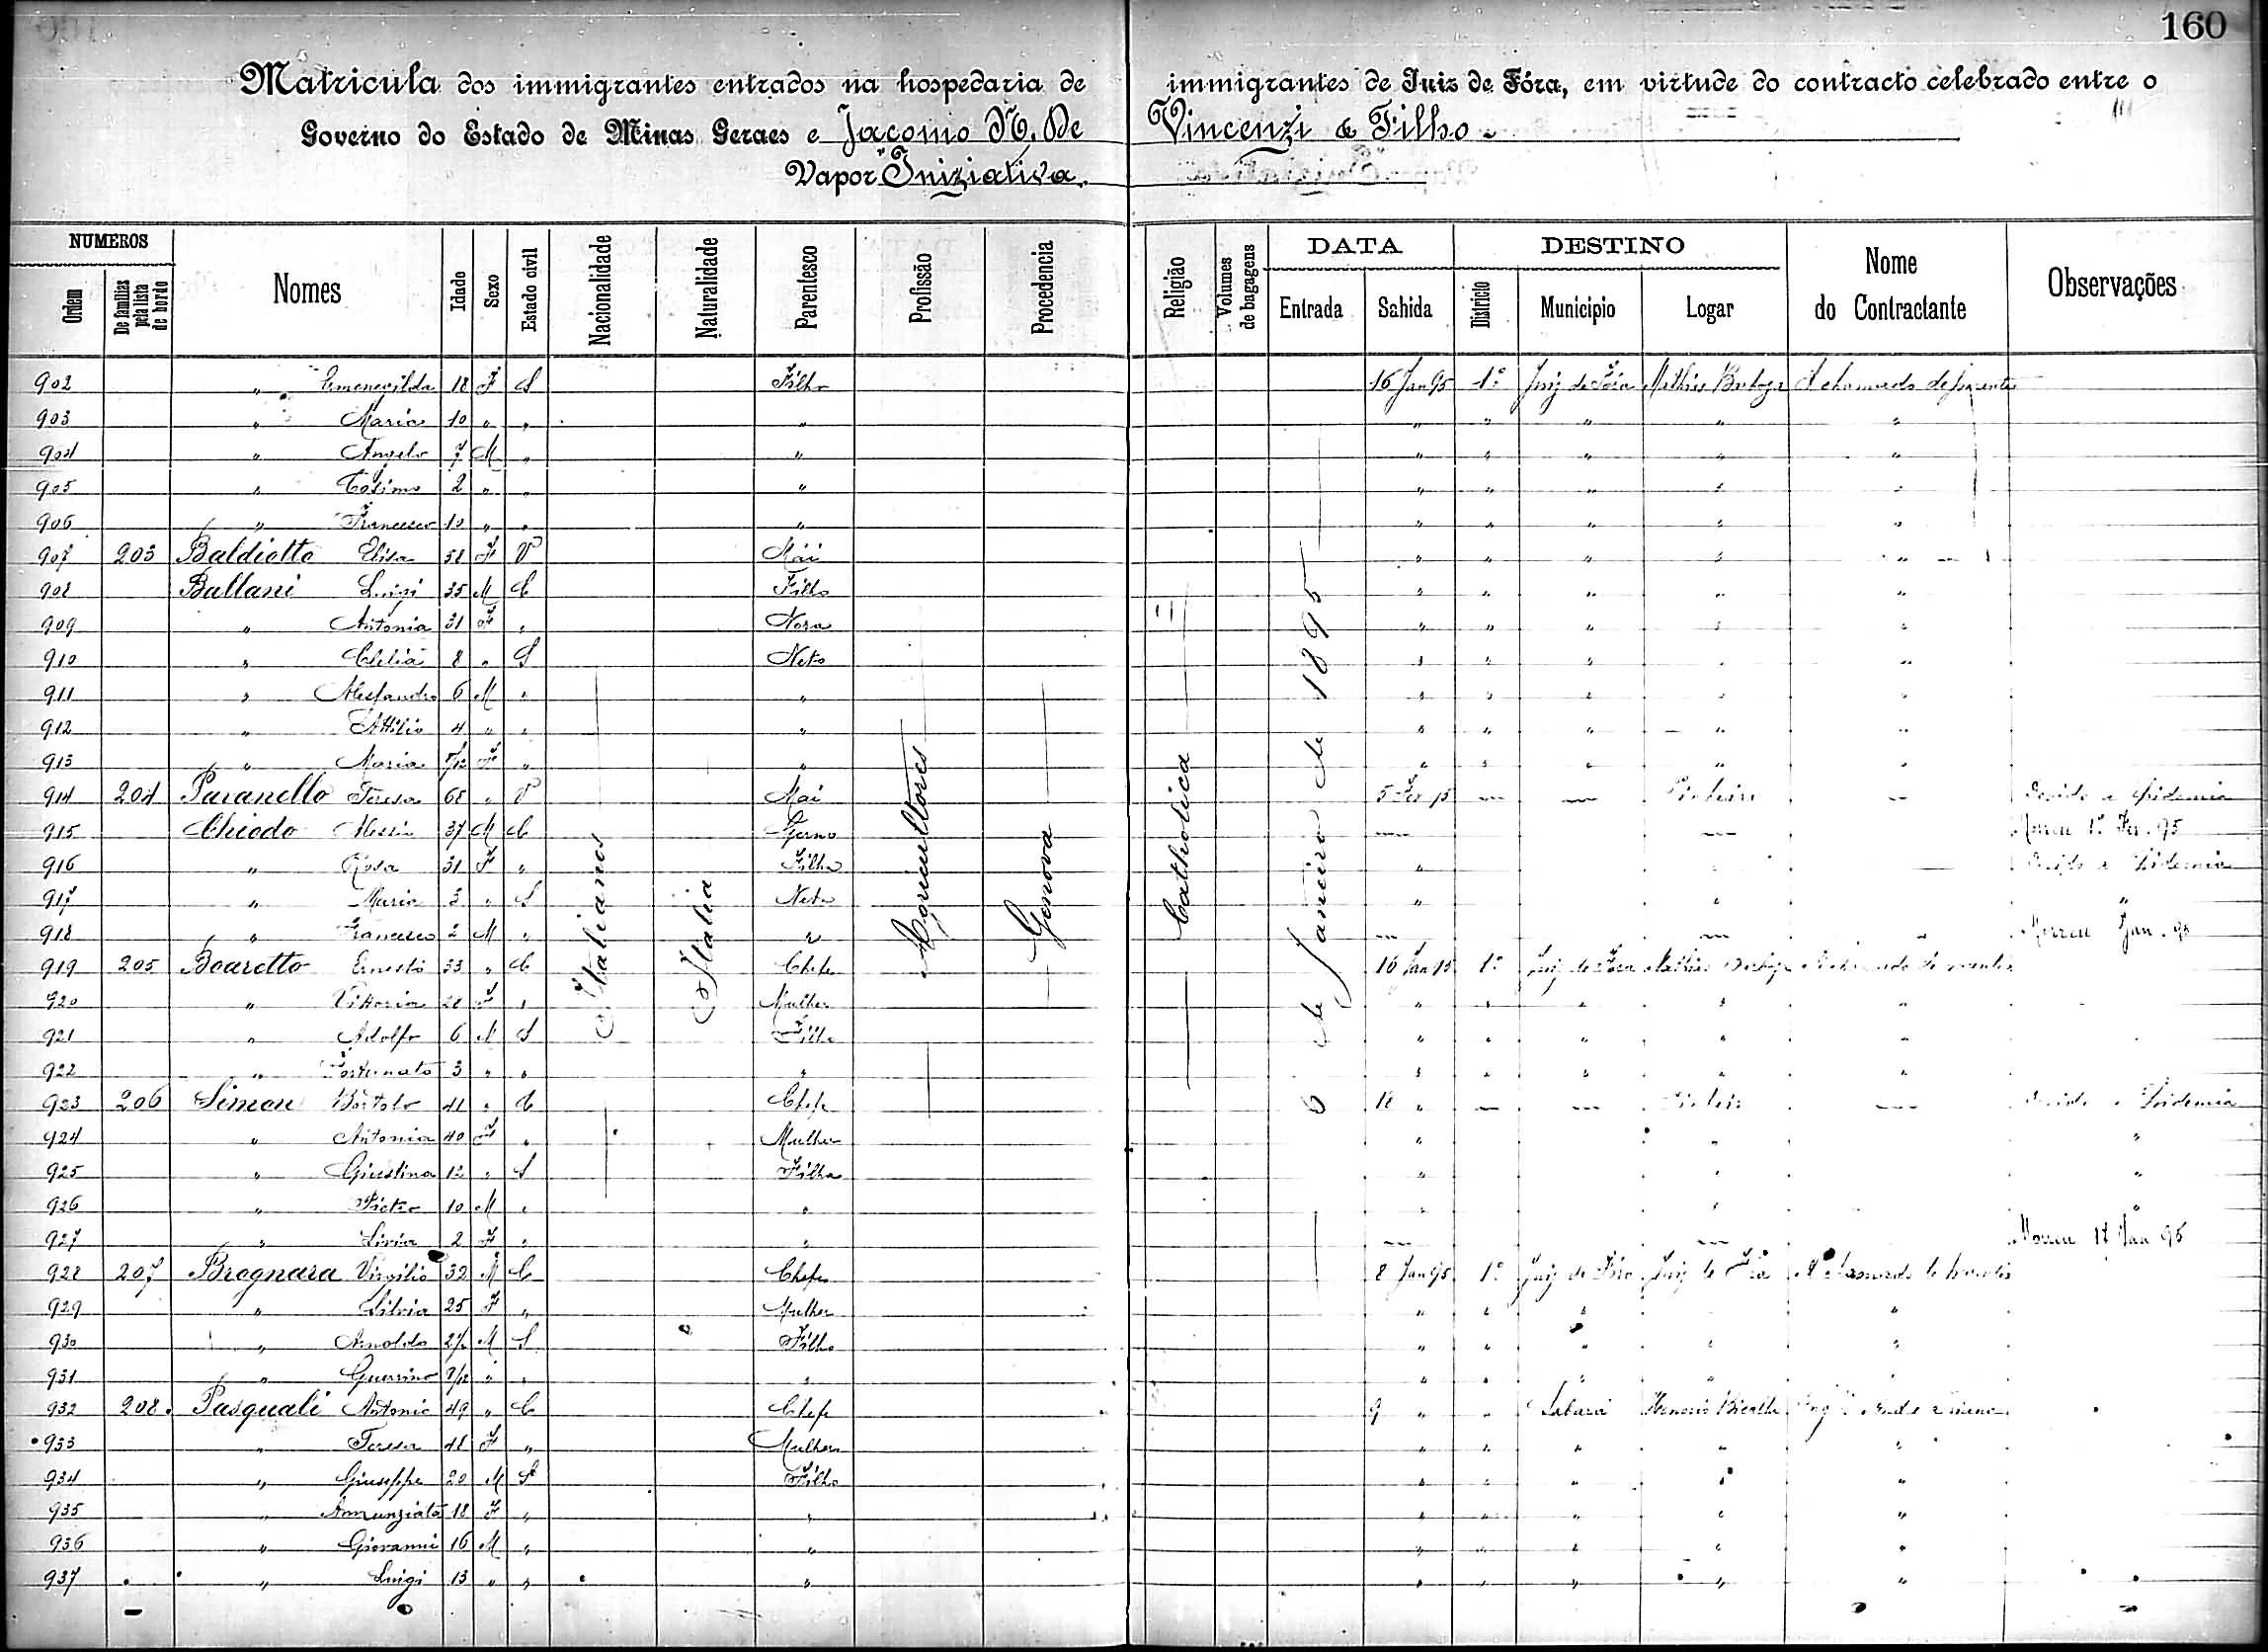 160
Matricula dos immigrantes entrados na hospedaria de immigrantes de Juiz de Fóra, em virtude do contracto celebrado entre o
Governo do Estado de Minas Geraes e Jacomo N. De Vincenzi & Filho.
Vapor "Iniziativa.
NUMEROS DATA DESTINO
Ordem De familias pela lista de bordo Nomes Idade Sexo Estado civil Nacionalidade Naturalidade Parentesco Profissão Procedencia Religião Volumes de bagagens Entrada Sahida Districto Municipio Logar Nome do Contractante Observações
Italianos Italia Agricultores Genova Catholica 6 de Janeiro de 1895
902 " Ermenegilda 18 F S Filho 16 Jan 95 1º Juiz de Fóra Mathias Barboza A chamado de parentes
903 " Maria 10 " " " " " " " "
904 " Angelo 7 M " " " " " " "
905 " Cosimo 2 " " " " " " " "
906 " Francesco 10 " " " " " " " "
907 203 Baldiotto Elisa 58 F V Mãi " " " " "
908 Ballani Luigi 35 M C Filho " " " " "
909 " Antonia 31 F " Nora " " " " "
910 " Clelia 8 " S Neto " " " " "
911 " Alessandro 6 M " " " " " " "
912 " Attilio 4 " " " " " " " "
913 " Maria F " " " " " " "
914 204 Paranello Teresa 68 " V Mai 5 Fev 95 — — Pinheiro — Devido a Epidemia
915 Chiodo Alessio 37 M C Genro — — Morreu 1º Fev. 95
916 " Rosa 31 F " Filha " Devido a Epidemia
917 " Maria 3 " S Neta " " "
918 " Francesco 2 M " " — — Morreu Jan. 95
919 205 Boaretto Ernesto 33 " C Chefe 16 Jan 95 1º Juiz de Fóra Mathias Barboza A chamado de parentes
920 " Vittoria 28 F " Mulher " " " " "
921 " Adolfo 6 M S Filho " " " " "
922 " Fortunato 3 " " " " " " " "
923 206 Simon Bortolo 41 " C Chefe 18 " — — Pinheiro — Devido a Epidemia
924 " Antonia 40 F " Mulher " " "
925 " Giustina 12 " S Filha " " "
926 " Pietro 10 M " " " " "
927 " Livia 2 F " " — — Morreu 17 Jan 95
928 207 Bragnara Virgilio 32 M C Chefe 8 Jan 95 1º Juiz de Fóra Juiz de Fóra A chamado de parentes
929 " Silvia 25 F " Mulher " " " "
930 " Arnoldo M S Filho " " " " "
931 " Guerrino " " " " " " "
932 208. Pasquali Antonio 49 " C Chefe 9 " " Sabará
933 " Teresa 48 F " Mulher " " " " "
934 " Giuseppe 20 M S Filho " " " " "
935 " Annunziata 18 F " " " " " " "
936 " Giovanni 16 M " " " " " " "
937 " Luigi 13 " " " " " " " "